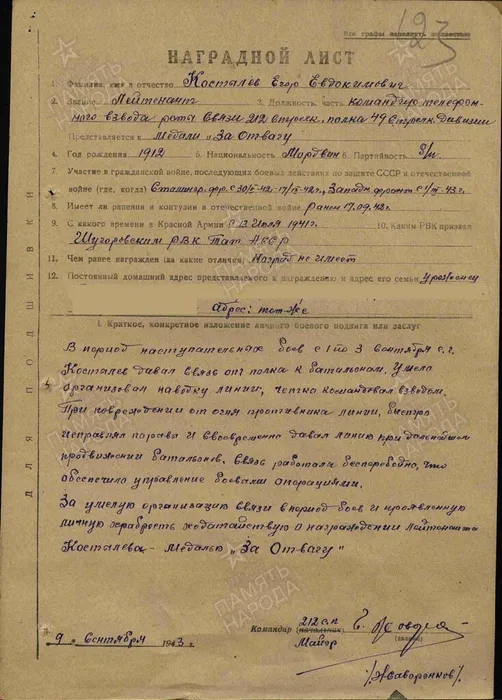 Все графы заполнять полностью
123
НАГРАДНОЙ ЛИСТ
1. Фамилия, имя и отчество Косталев Егор Евдокимович
2. Звание Лейтенант 3. Должность, часть командир телефон-
ного взвода роты связи 212 стрелк. полка 49 стрелк. дивизии
Представляется к Медали „За Отвагу"
4. Год рождения 1912 5. Национальность Мордвин 6. Партийность б/п
7. Участие в гражданской войне, последующих боевых действиях по защите СССР и отечественной
войне (где, когда) Сталингр. фр. с
8. Имеет ли ранения и контузии в отечественной войне Ранен 17.09.42г.
9. С какого времени в Красной Армии с Июля 1941г. 10. Каким РВК призван
Шугоровским РВК Тат. АССР
11. Чем ранее награжден (за какие отличия) Наград не имеет
12. Постоянный домашний адрес представляемого к награждению и адрес его семьи
Адрес: тот-же
I. Краткое, конкретное изложение личного боевого подвига или заслуг
В период наступательных боев с 1 по 3 сентября с.г.
Косталев давал связь от полка к батальонам, умело
организовал наводку линии, четко командовал взводом.
При повреждении от огня противника линии, быстро
исправлял порывы и своевременно давал линию при дальнейшем
продвижении батальонов. Связь работала бесперебойно, что
обеспечило управление боевыми операциями.
За умелую организацию связи в период боев и проявленную
личную храбрость ходатайствую о награждении Лейтенанта
Косталева - Медалью „За Отвагу"
Командир 212 с.п.
(начальник)
Майор
9 Сентября 1943 г.
/Жаворонков/
ДЛЯ ПОДШИВКИ
ПАМЯТЬ НАРОДА